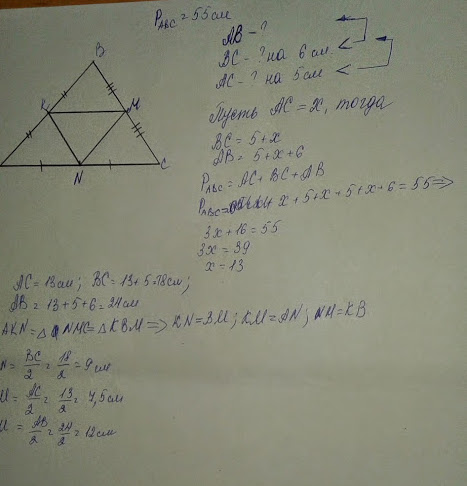 P_ABC = 55 см
AB - ?
BC - ? на 6 см <
AC - ? на 5 см <
B
K
M
N
C
Пусть AC = x, тогда
BC = 5 + x
AB = 5 + x + 6
P_ABC = AC + BC + AB
P_ABC = x + 5 + x + 5 + x + 6 = 55 =>
3x + 16 = 55
3x = 39
x = 13
AC = 13 см; BC = 13 + 5 = 18 см;
AB = 13 + 5 + 6 = 24 см
AKN = △ NMC = △ KBM => KN = BM; KM = AN; NM = KB
N = BC/2 = 18/2 = 9 см
M = AC/2 = 13/2 = 7,5 см
M = AB/2 = 24/2 = 12 см